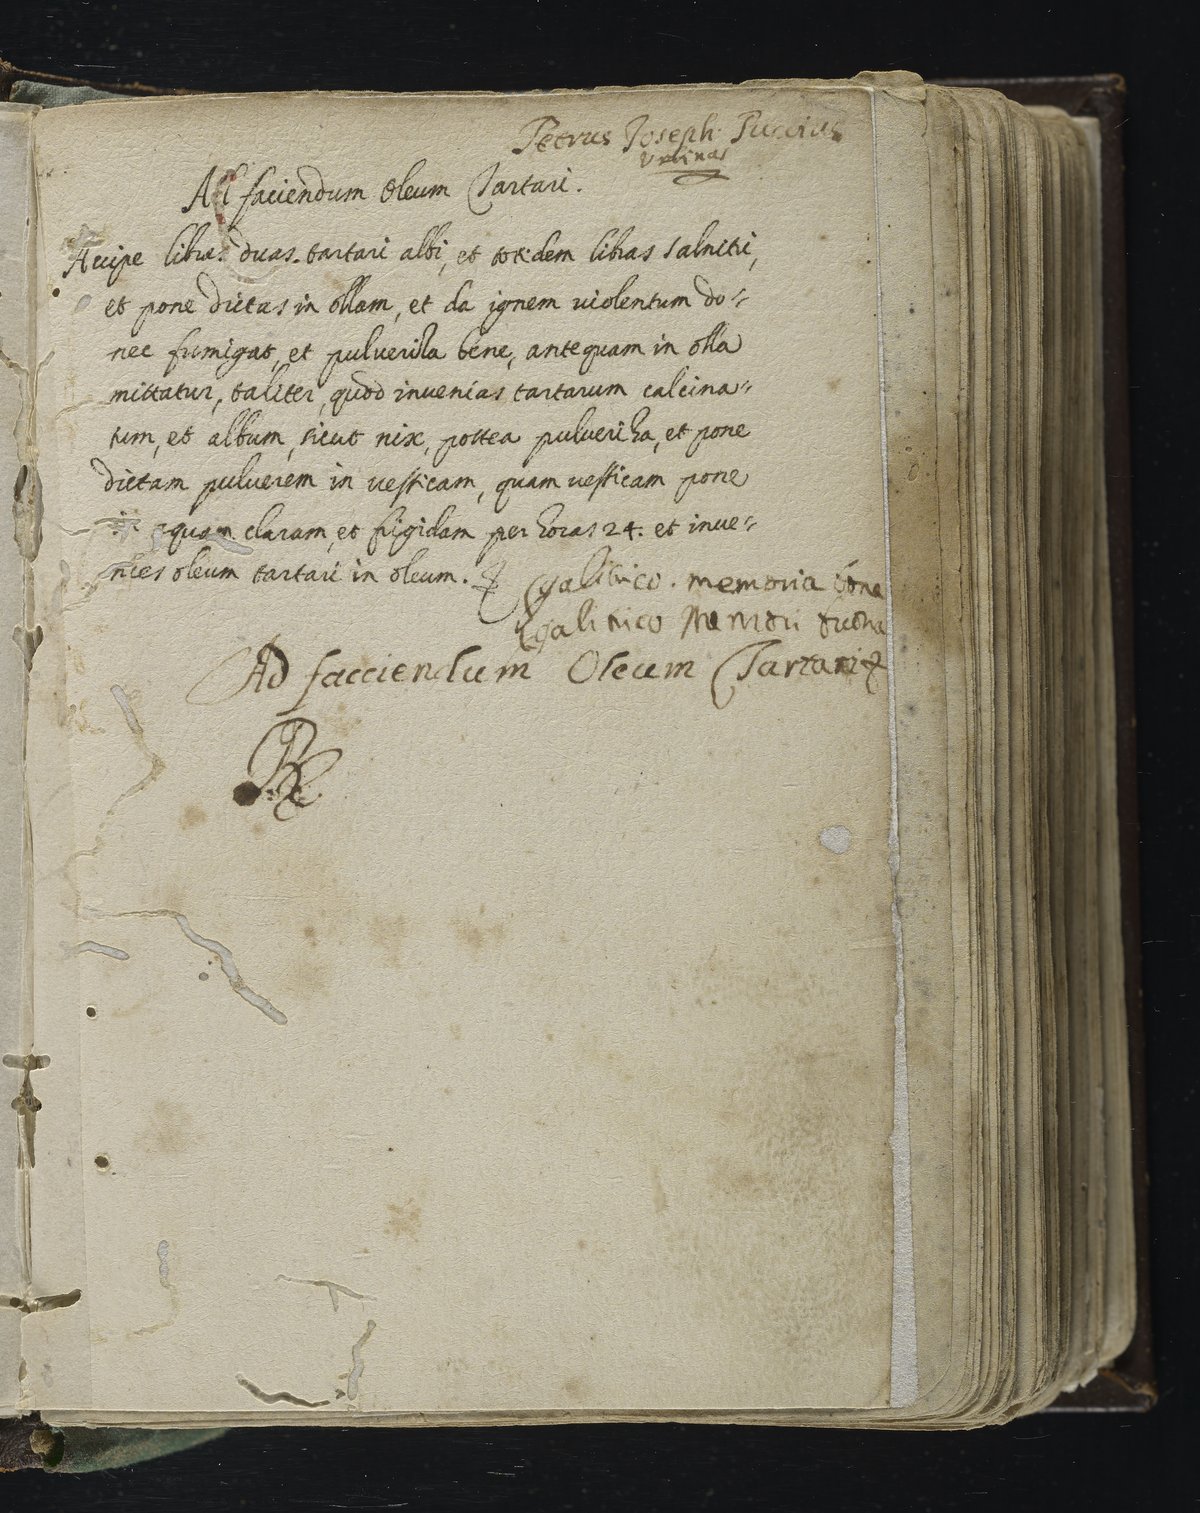 Petrus Joseph Puccius
Urbinas
Ad faciendum Oleum Tartari.
Accipe libras duas tartari albi, et totidem libras salnitri,
et pone dictas in ollam, et da ignem violentum do=
nec fumigat, et pulveriza bene, antequam in olla
mittatur, taliter, quod invenias tartarum calcina=
tum, et album, sicut nix, postea pulveriza, et pone
dictam pulverem in vessicam, quam vessicam pone
in aquam claram, et frigidam per horas 24. et inve=
nies oleum tartari in oleum.
memoria bona
Ad facciendum Oleum Tartari